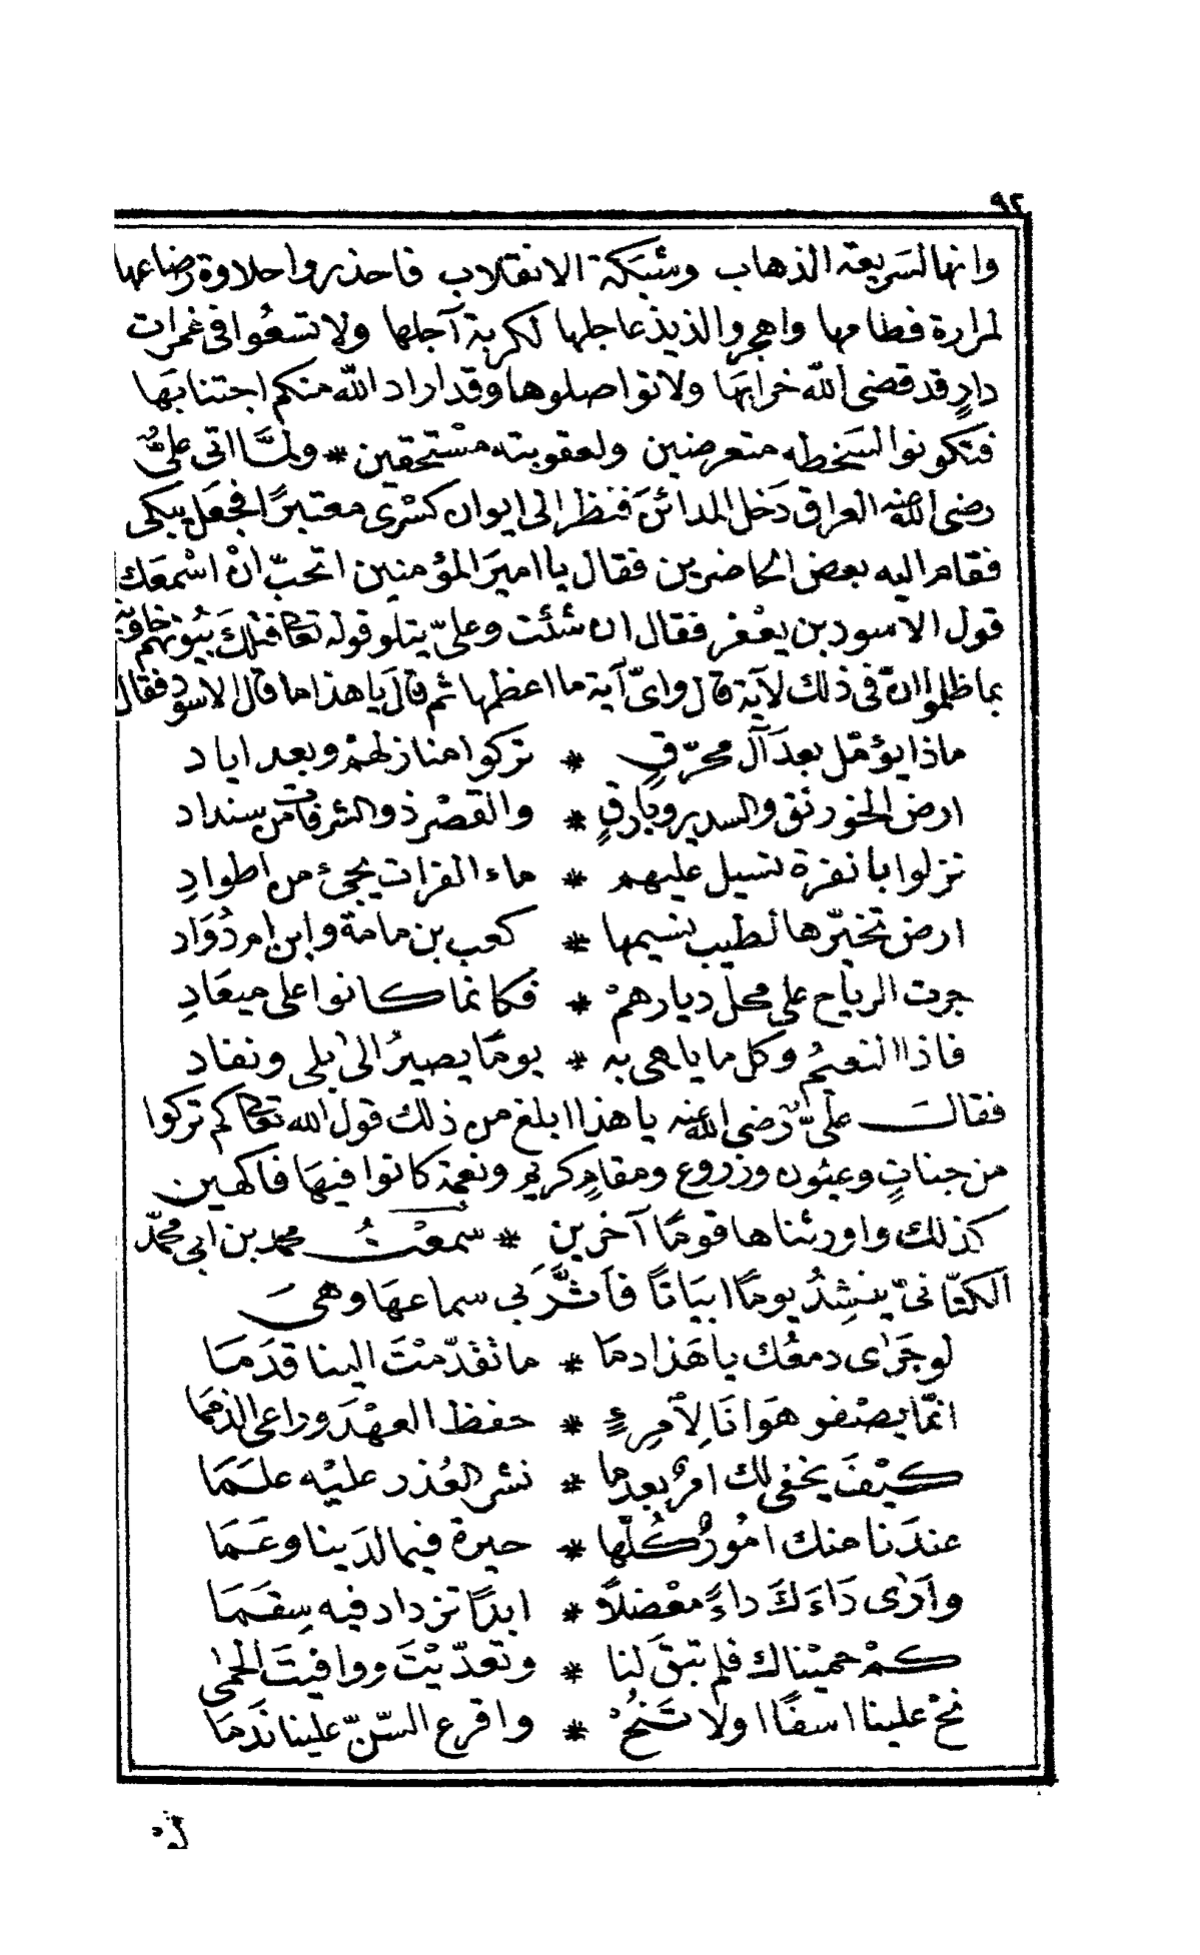 ٩٢
وانها لسريعة الذهاب وشيكة الانقلاب فاحذروا حلاوة رضاعها
لمرارة فطامها واهجروا لذيذ عاجلها لكربة آجلها ولا تسعوا فى غمرات
دارٍ قد قضى الله خرابَها ولا تواصلوها وقد اراد الله منكم اجتنابَها
فتكونوا لسَخطه متعرضين ولعقوبته مسْتحقين * ولمَّا اتى علىٌّ
رضى الله عنه العراق دَخل المدائنَ فنظر الى ايوان كسْرى معتبرًا فجعَل يبكى
فقام اليه بعض الحاضرين فقال يا اميرَ المؤمنين اتحبّ انْ اسْمعَك
قول الاسود بن يعْفر فقال ان شئت وعلىّ يتلو قوله تعالى فتلكَ بيُوتهم خاوية
بما ظلموا انّ فى ذلك لآية قال واىّ آية ما اعظمها ثم قالَ يا هذا ما قال الاسود فقال
ماذا يؤمّل بعدَ آل محرّقٍ * تركوا منازلهمْ وبعد اياد
ارض الخورنق والسدير وبارقٍ * والقصْر ذو الشرفات من سنداد
نزلوا بانقرة تسيل عليهم * ماء الفرات يجئ من اطوادِ
ارض تخيّرها لطيب نسيمها * كعب بن مامة وابن ام دُوَاد
جرت الرياح على محلّ ديارهمْ * فكانما كانوا على ميعَادِ
فاذا النعيمُ وكل ما يلهى به * يومًا يصيرُ الى بلى ونفاد
فقالَ علىّ رضى الله عنه يا هذا ابلغ من ذلك قول الله تعالى كم تركوا
من جناتٍ وعيُون وزروع ومقامٍ كريم ونعمة كانوا فيهَا فاكهين
كذلك واورثناها قومًا آخرين * سمعْتُ محمد بن ابى محمّد
الكتّانىّ ينشِدُ يومًا ابيَاتًا فاَثَّرَ بى سماعهَا وهىَ
لو جَرَى دمعُك يا هَذا دمَا * ما تقدّمْتَ الينا قدَمَا
انّما يصْفو هَوَانَا لِاْمرِءٍ * حفظ العهْدَ وراعى الذممَا
كيْفَ يخفى لك امرٌ بعدما * نشر العُذر عليْه علَمَا
عندَنا منك امُورٌ كُلّها * حيرة فيما لدَينا وعَمَا
وأَرَى دَاءَكَ داءً معْضلاً * ابدًا تزداد فيه سِقمَا
كمْ حميْناك فلم تبقَ لنا * وتعدّيْتَ ووافيتَ الحمٰى
نحْ علينا اسَفًا اولا تَنحُ * واقرع السّنّ علينا ندَمَا